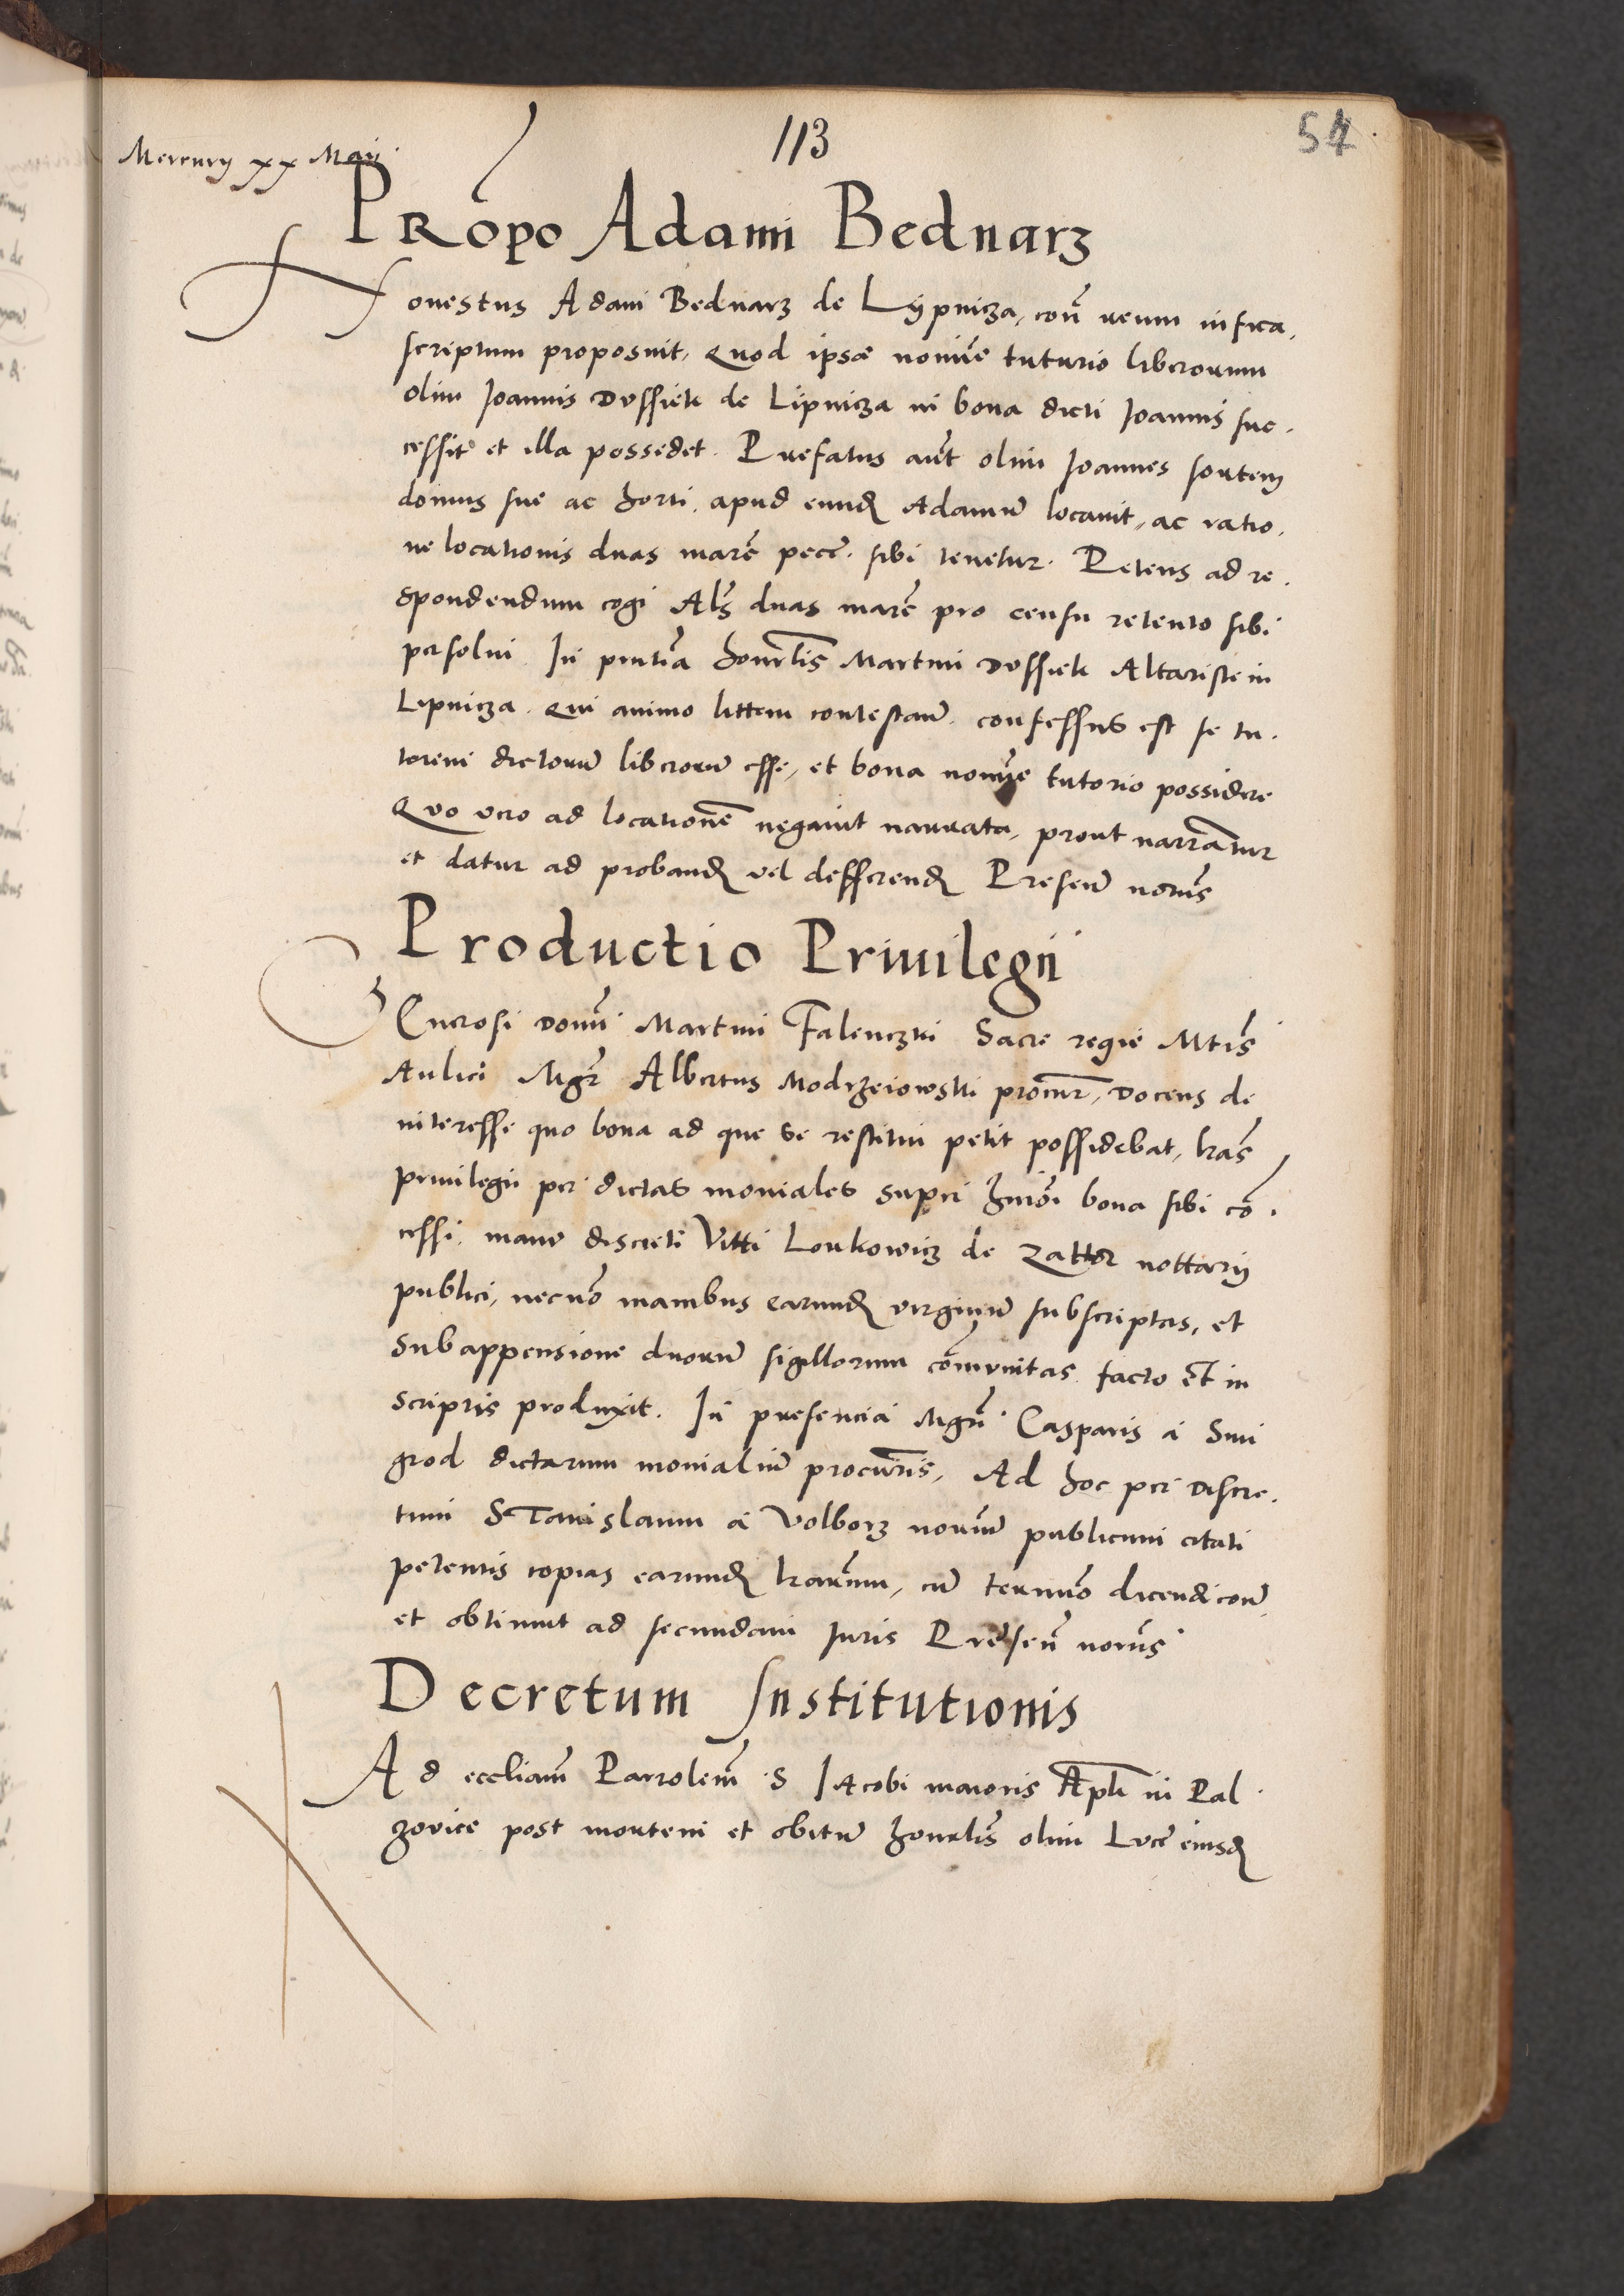 113
54
Mercurij xx Maij
PRopo Adami Bednarz
Honestus Adam Bednarz de Lÿpnicza, con̄ reum infra,
scriptum proposuit, Quod ipse nomīe tuturio liberorum
olim Joannis Dossiek de Lipnicza in bona dicti Joannis suc.
cessit et illa possedet. Prefatus aūt olim Joannes sortem
domus sue ac horti. apud eund Adamū locavit, ac ratio.
ne locationis duas marc̄ pecc̄. sibi tenetur. Petens ad re.
spondendum cogi Als̄ duas marc̄ pro censu retento sibi
persolui In pn̄tia honrlis Martini Dossiek Altariste in
Lipnicza. Qui animo littem contestan̄. confessus est se tu.
torem dictorū liberorū esse, et bona nomīe tutorio possidere
Quo vero ad locationē negauit narrata, prout narrāntur
et datur ad proband vel defferend Presen̄ norīs
Productio Priuilegii
GEnerosi domī Martini Falenczki Sacre regie Mtīs
Aulici Mgr̄ Albertus Modrzeiowski procur̄, Docens de
interesse quo bona ad que se restitui petit possidebat, lrās
priuilegii per dictas moniales super hmōi bona sibi cō.
cessi. manu discreti Vitti Lonkowicz de Zattor nottarij
publici, necnō manibus earund virginū subscriptas, et
sub appensione duorū sigillorum cōmunitas facto et in
scriptis produxit. In presencia Mgrī Casparis a Smi
grod dictarum monialiū procurīs, Ad hoc per Discre.
tum STanislaum a Volborz norium publicum citati
petentis copias earund lrarum, cū termīo dicendi con̄
et obtinuit ad secundam Juris Presen̄ norīs
Decretum Institutionis
Ad eccliam̄ Parrolem̄ S Jacobi maioris Apli in Pal
zovice post mortem et obitū honrlis olim Luce eiusd